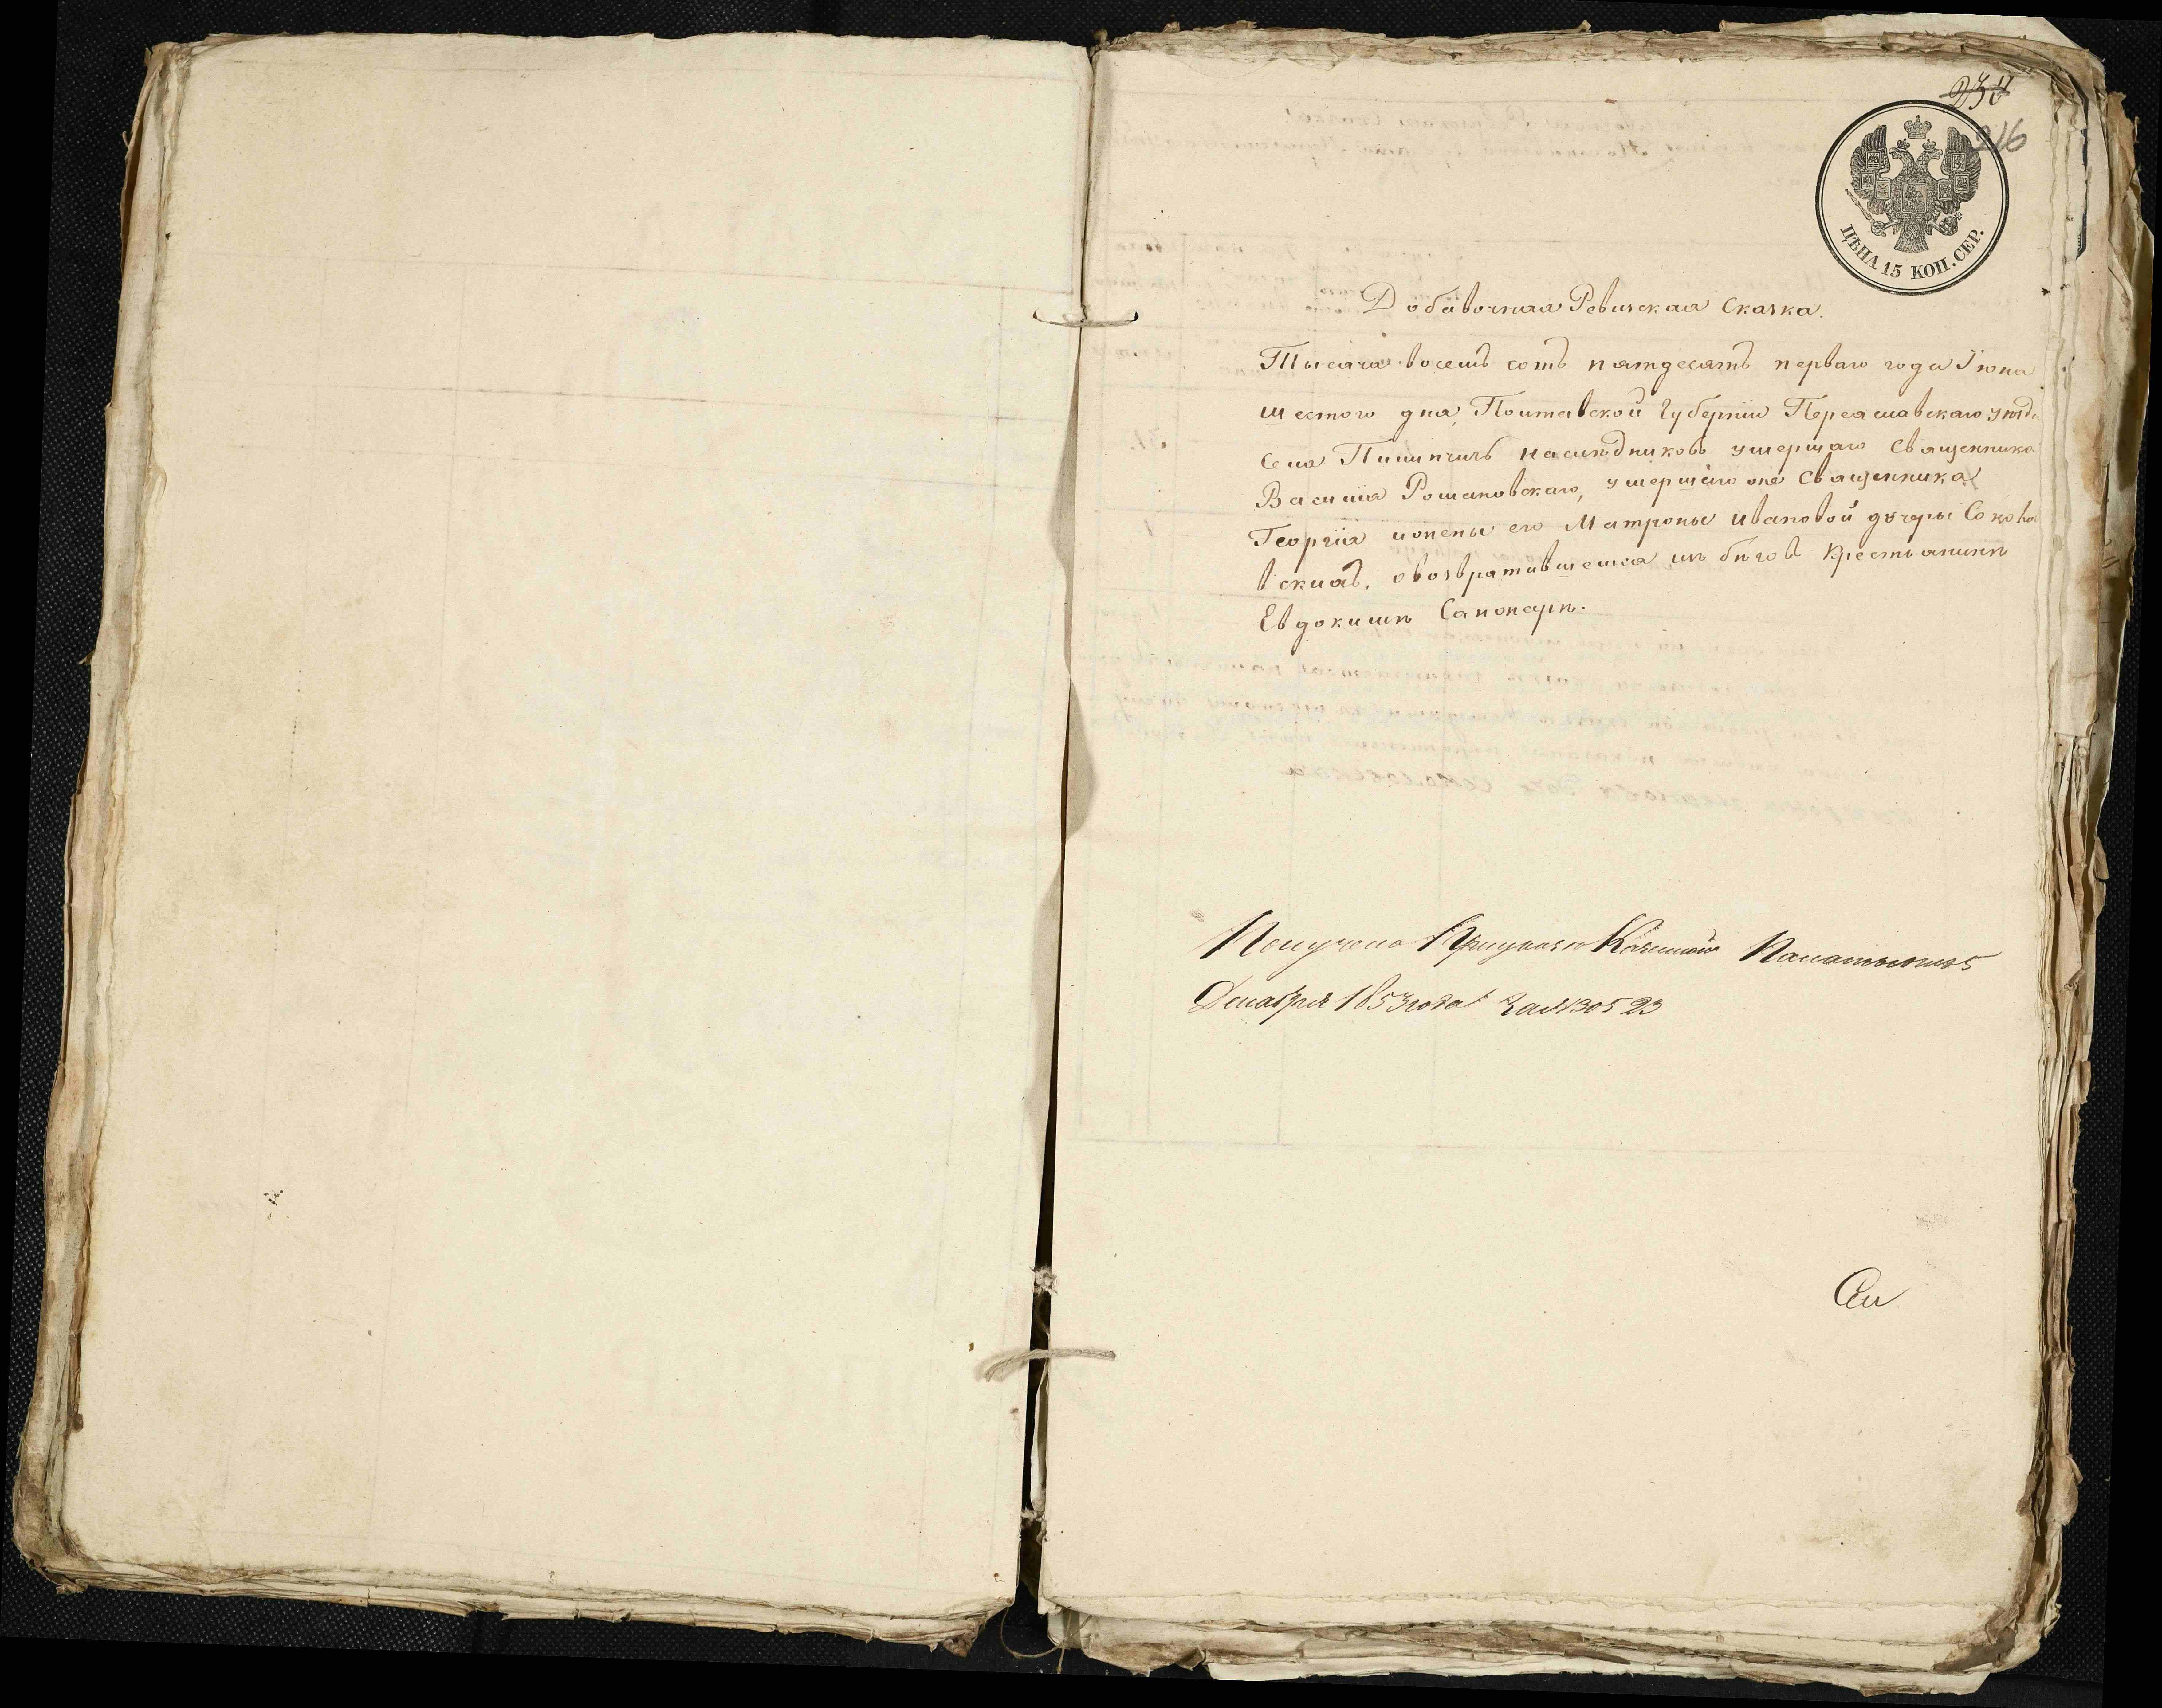 234
216
ЦѢНА 15 КОП. СЕР.
Добавочная Ревизская Сказка.
Тысяча восемъ сотъ пятдесятъ перваго года Іюня
шестого дня, Полтавской Губерніи Переяславскаго уѣзда
Села Пилипчичъ наслѣдниковъ умершаго Священника
Василія Романовскаго, умершаго опе Священника
Георгія ижены его Матроны Ивановой дочеры Соколо
вскихъ, овозвратившемся изъ бѣговъ Крестьянинѣ
Евдокимѣ Сапожарѣ.
Получено Приуказѣ Казенной Палаты
Декабря 1853 года За № 30523
Сел